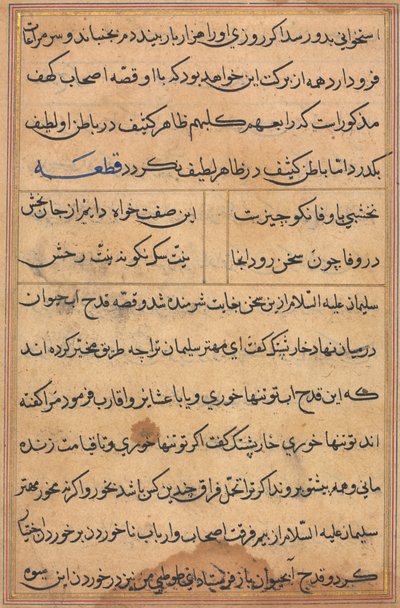 استخوانی بدو رسد اگر روزی او را هزار بار بیند دم بجنباند و سر مراعات
فرود آرد همه از برکت این خواهد بود که با او قصه اصحاب کهف
مذکور است که رابعهم کلبهم ظاهر کثیف در باطن او لطیف
بگذرد اما باطن کثیف در ظاهر لطیف نگردد قطعه
نخشبی با وفا نکو چیزیست این صفت خواه دایم از جان بخش
در وفا چون سخن رود اینجا
سلیمان علیه السلام از این سخن بغایت شرمنده شد و قصه قدح آب حیوان
در میان نهاد خارپشتک گفت ای مهتر سلیمان ترا چه طریق مخیر کرده اند
که این قدح آب تو تنها خوری و یا با عشایر و اقارب فرمود مرا گفته
اند تو تنها خوری خارپشتک گفت اگر تو تنها خوری و تا قیامت زنده
مانی و همه پیش تو بروند اگر ترا تحمل فراق چندین کس باشد بخور و اگر نه مخور مهتر
سلیمان علیه السلام از بهر فرقت اصحاب و ارباب ناخوردن بر خوردن اختیار
کرد و قدح آب حیوان باز فرستاد ای طوطی من نیز در خوردن این میوه